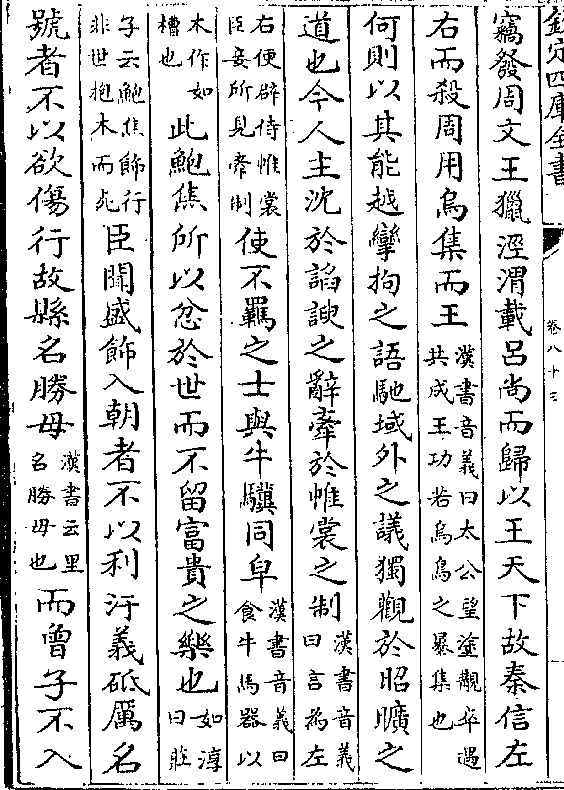 欽定四庫全書
卷八十三
竊發周文王獵涇渭載呂尚而歸以王天下故秦信左
右而殺周用烏集而王漢書音義曰太公望塗觀卒遇共成王功若烏鳥之暴集也
何則以其能越攣拘之語馳域外之議獨觀於昭曠之
道也今人主沈於諂諛之辭牽於帷裳之制漢書音義曰言為左
右便辟侍帷裳臣妾所見牽制使不羈之士與牛驥同皁漢書音義曰食牛馬器以
木作如槽也此鮑焦所以忿於世而不留富貴之樂也如淳曰莊
子云鮑焦飾行非世抱木而死臣聞盛飾入朝者不以利汙義砥厲名
號者不以欲傷行故縣名勝母漢書云里名勝母也而曾子不入